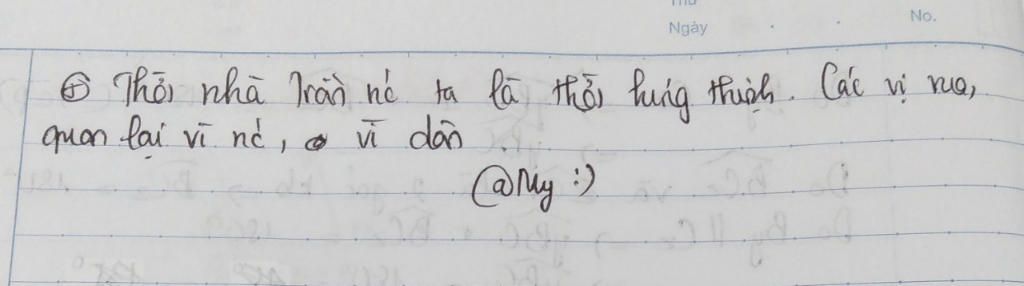 Thứ
Ngày . . No.
⊕ Thời nhà Trần nc' ta là thời hưng thịnh. Các vị vua,
quan lại vì nc', vì dân
@My :)